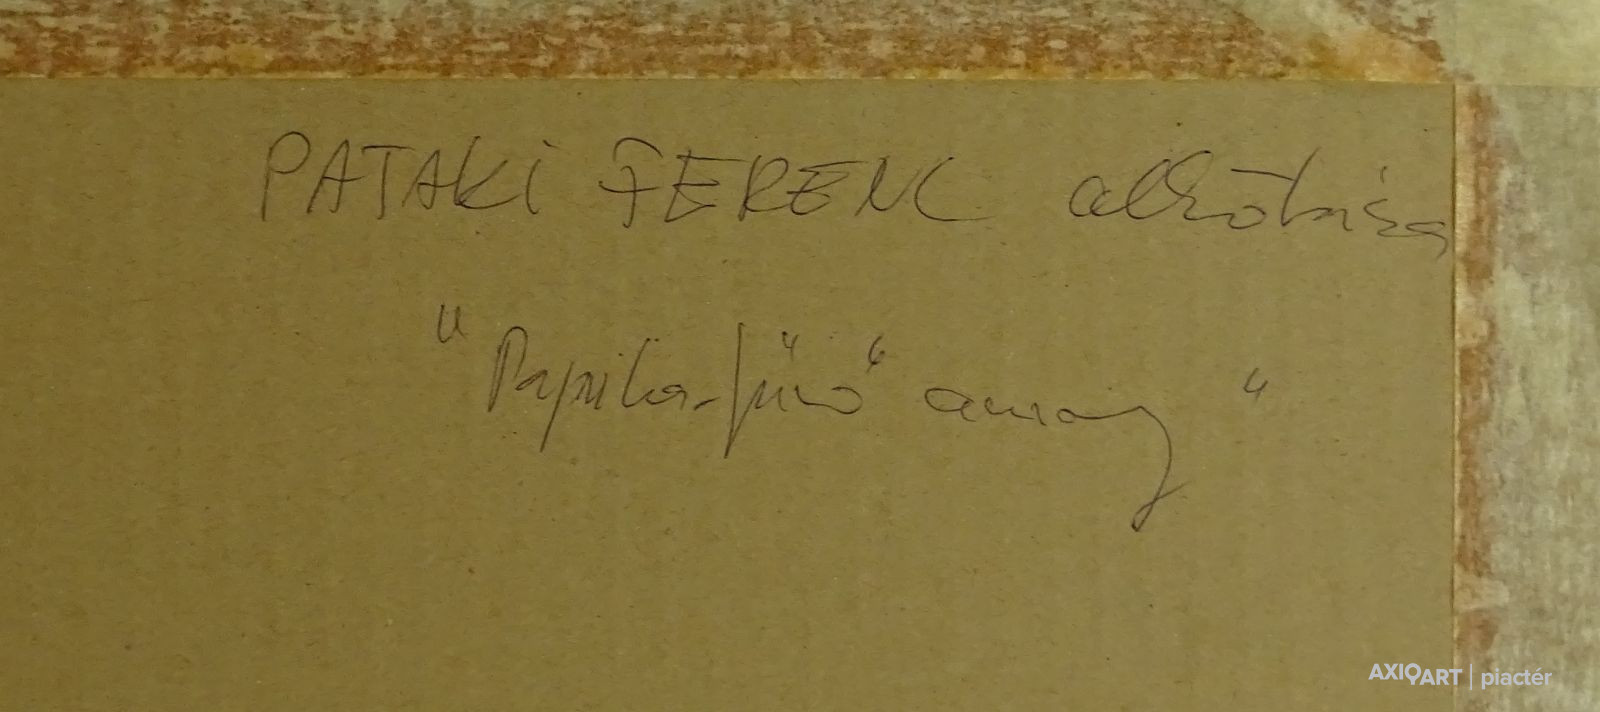 PATAKI FERENC alkotása
"Paprika-fűző" asszony "
AXIOART | piactér